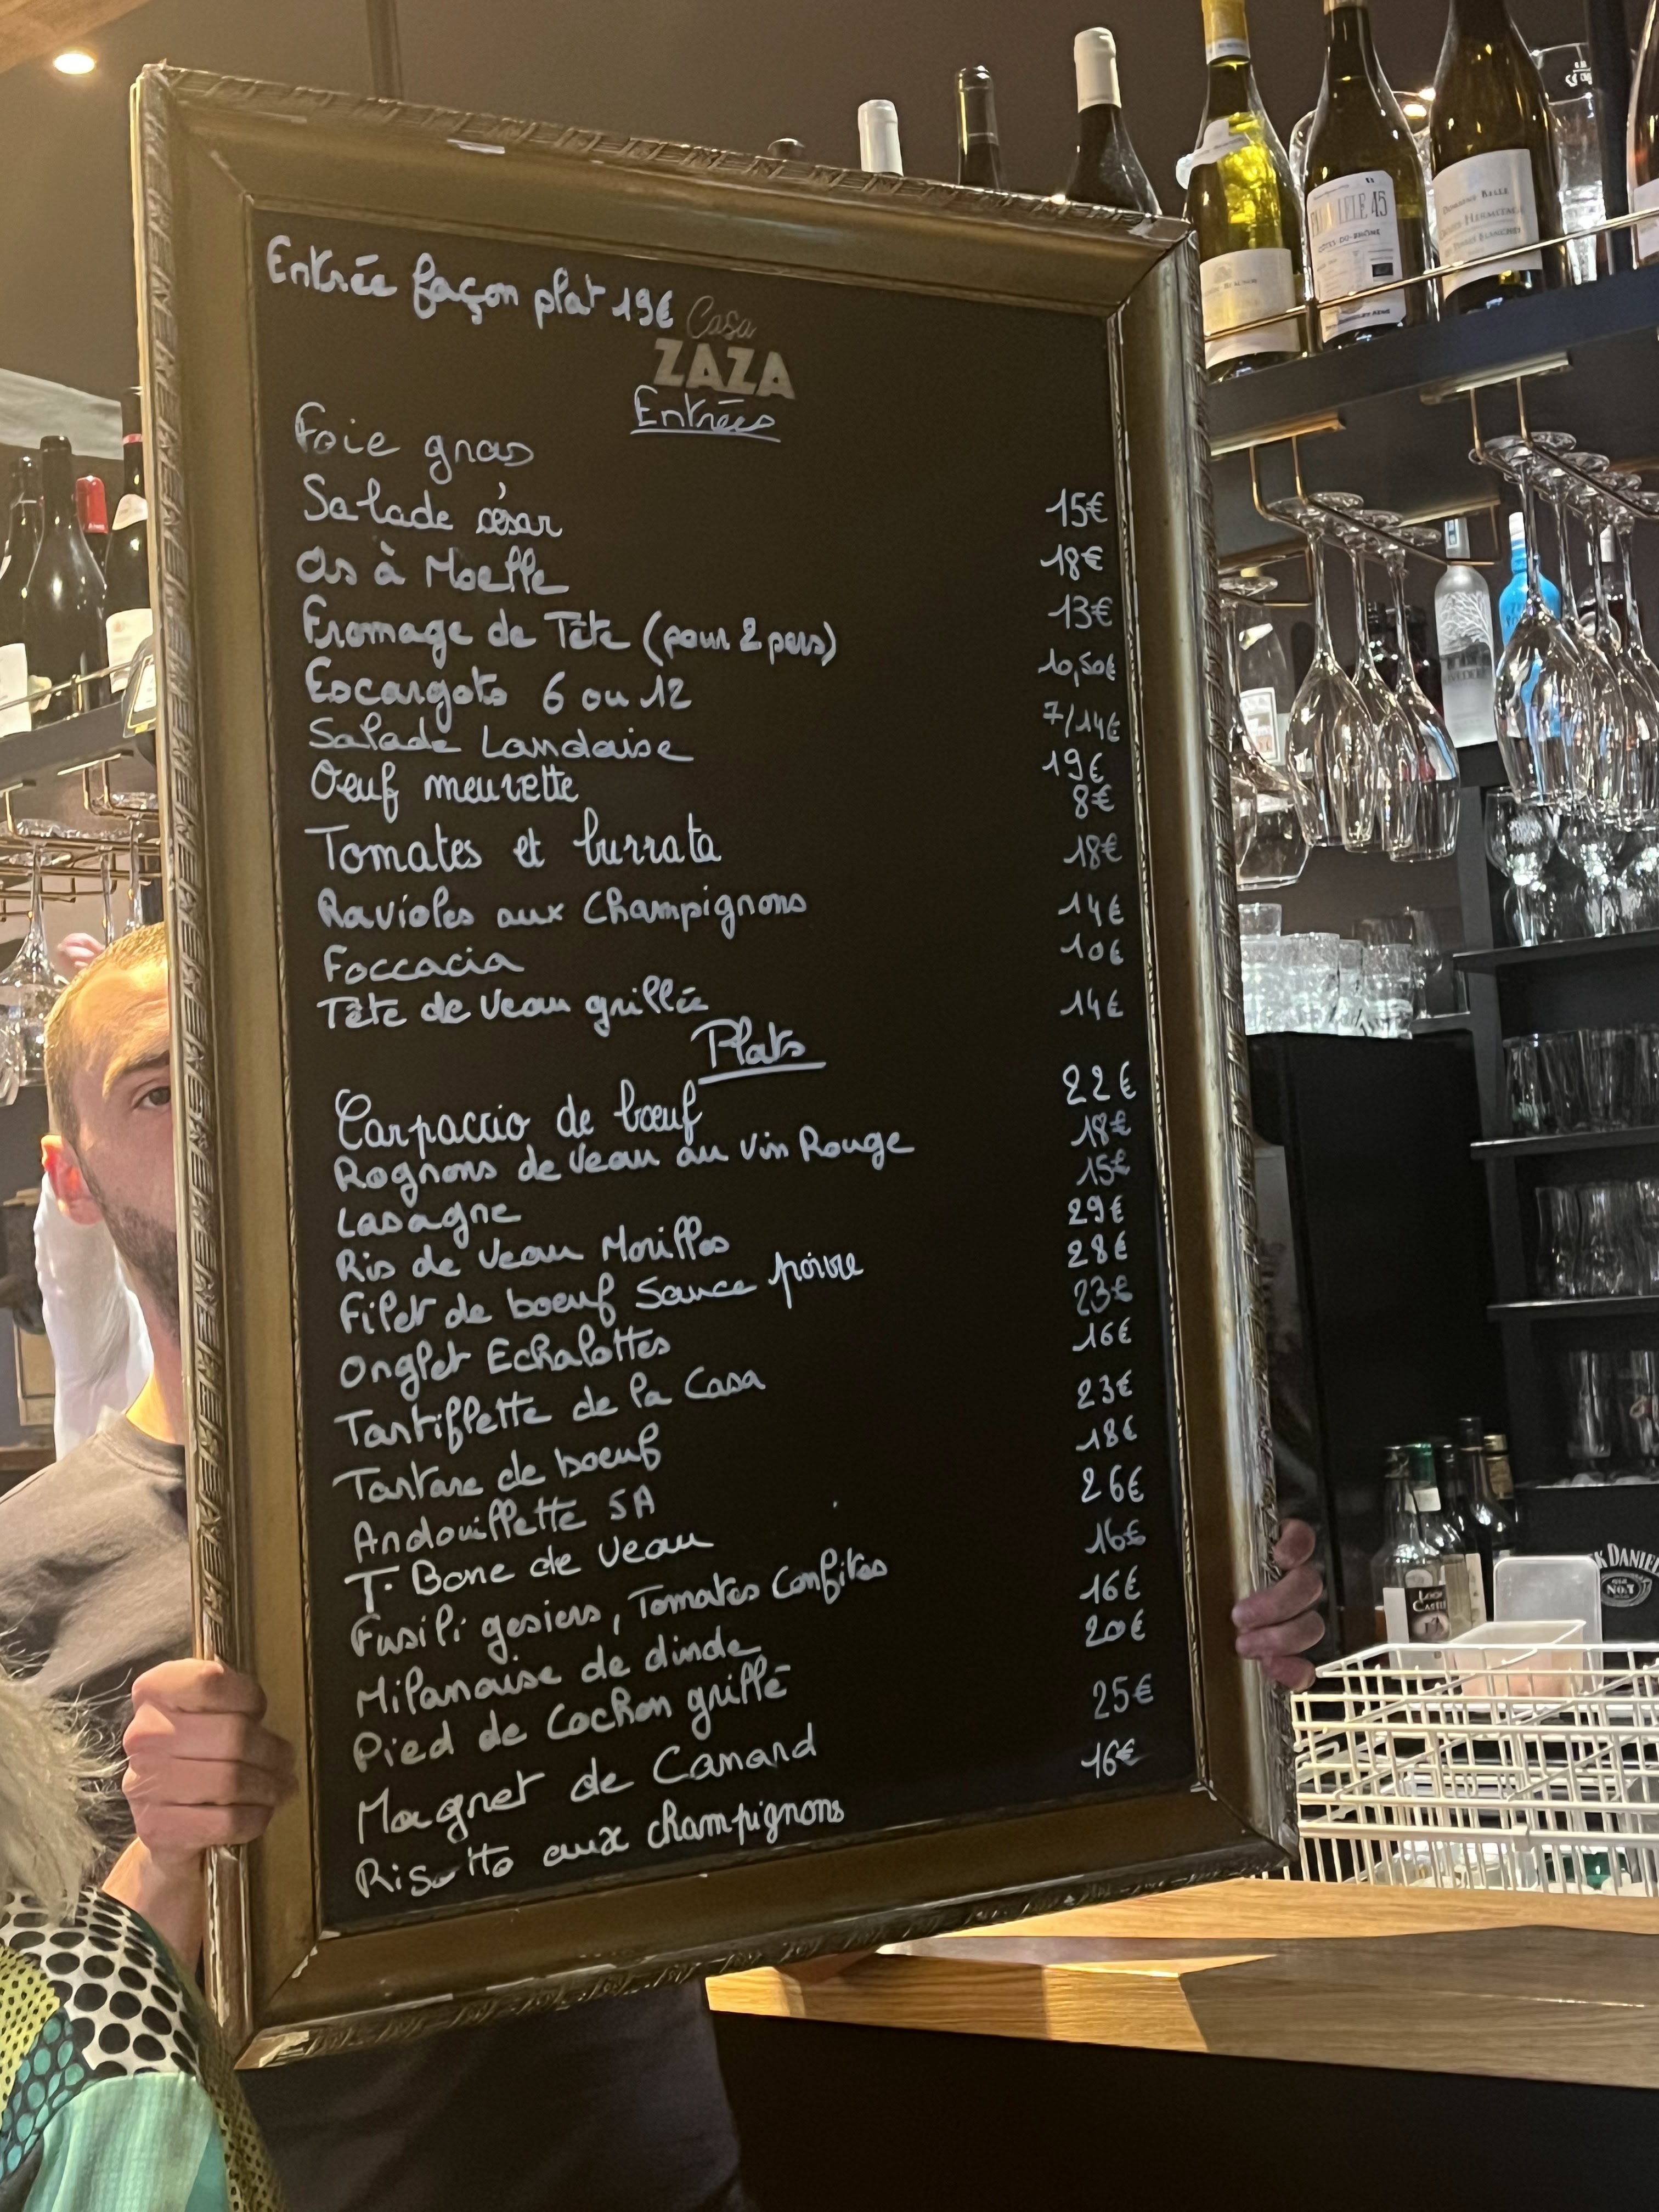 Entrée façon plat 19€
Casa
ZAZA
Entrées
Foie gras 15€
Salade césar 18€
Os à Moelle 13€
Fromage de Tête (pour 2 pers) 10,50€
Escargots 6 ou 12 7/14€
Salade Landaise 19€
Oeuf meurette 8€
Tomates et burrata 18€
Ravioles aux Champignons 14€
Foccacia 10€
Tête de Veau grillée 14€
Plats
Carpaccio de bœuf 22€
Rognons de Veau au Vin Rouge 18€
Lasagne 15€
Ris de Veau Morilles 29€
Filet de boeuf Sauce poivre 28€
Onglet Echalottes 23€
Tartiflette de la Casa 16€
Tartare de boeuf 23€
Andouillette 5A 18€
T. Bone de Veau 26€
Fusili gesiers, Tomates Confites 16€
Milanaise de dinde 16€
Pied de Cochon grillé 20€
Magret de Canard 25€
Risotto aux champignons 16€
45
CÔTES-DU-RHÔNE
DOMAINE BELLE
TERRES BLANCHES
DANIEL
NO.7